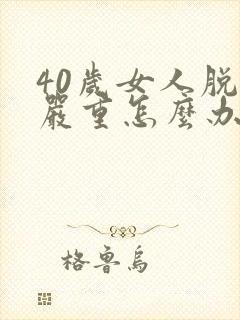 40歲女人脫
嚴重怎麼办
格鲁烏